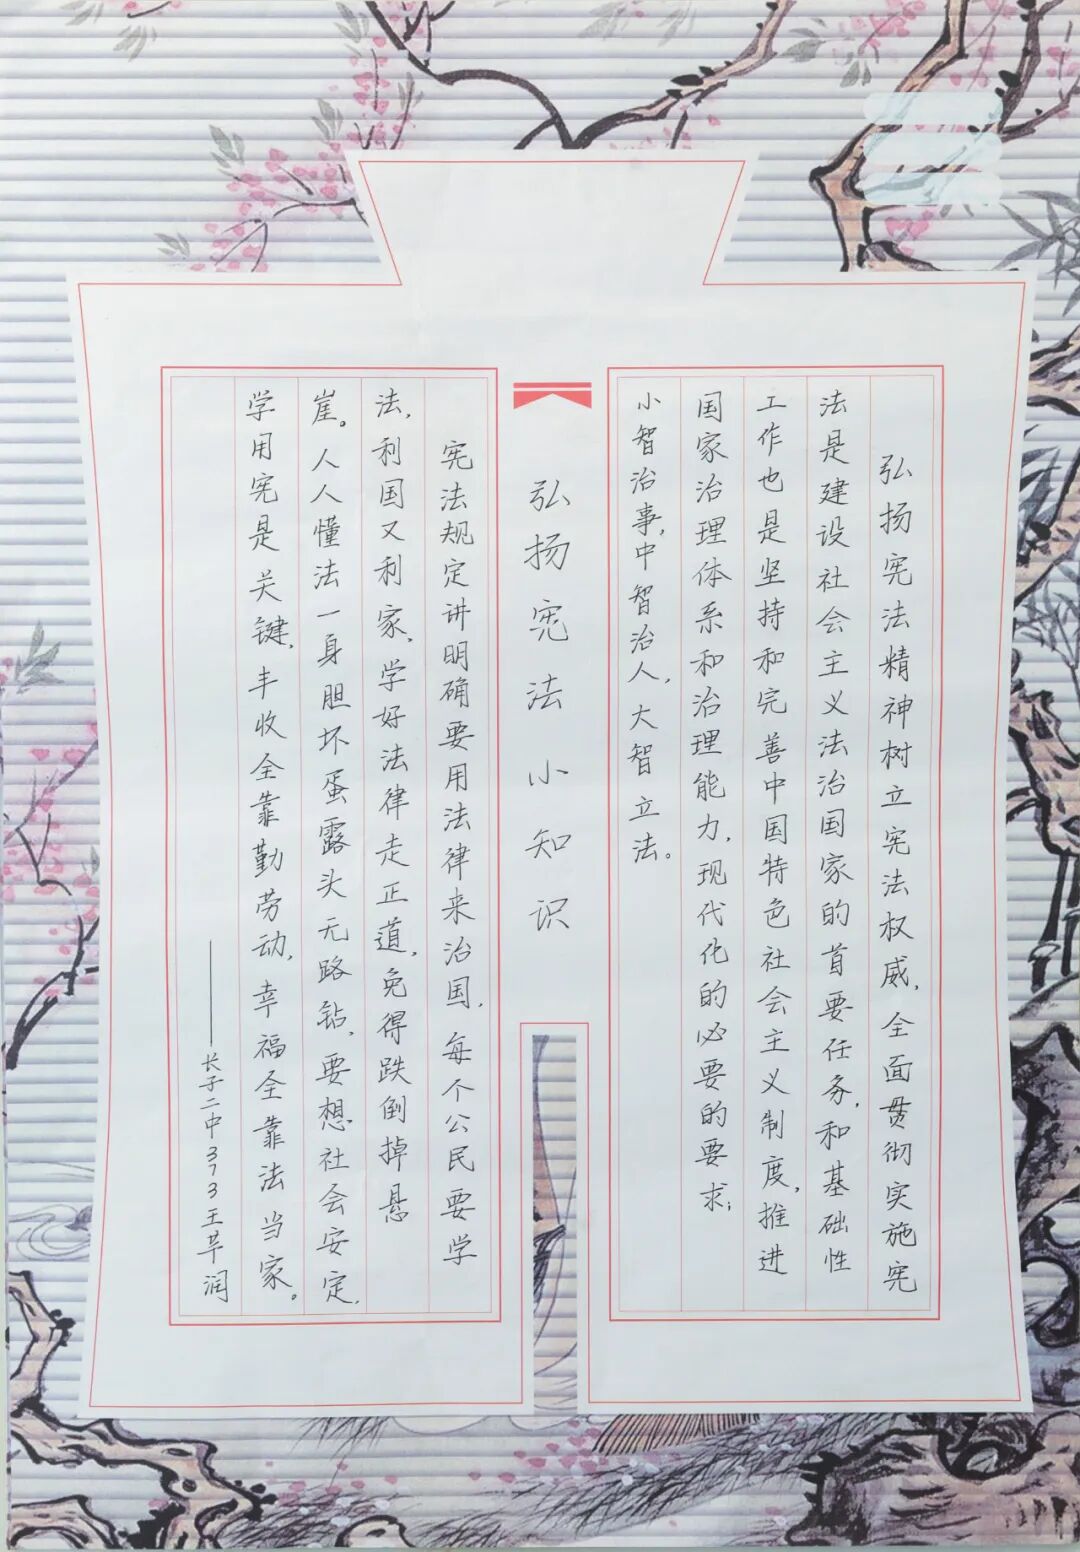 弘扬宪法精神树立宪法权威,全面贯彻实施宪
法是建设社会主义法治国家的首要任务,和基础性
工作也是坚持和完善中国特色社会主义制度,推进
国家治理体系和治理能力,现代化的必要的要求;
小智治事,中智治人,大智立法。
弘扬宪法小知识
宪法规定讲明确要用法律来治国,每个公民要学
法,利国又利家,学好法律走正道,免得跌倒掉悬
崖。人人懂法一身胆坏蛋露头无路钻,要想社会安定,
学用宪是关键,丰收全靠勤劳动,幸福全靠法当家。
——长子二中373王芊润